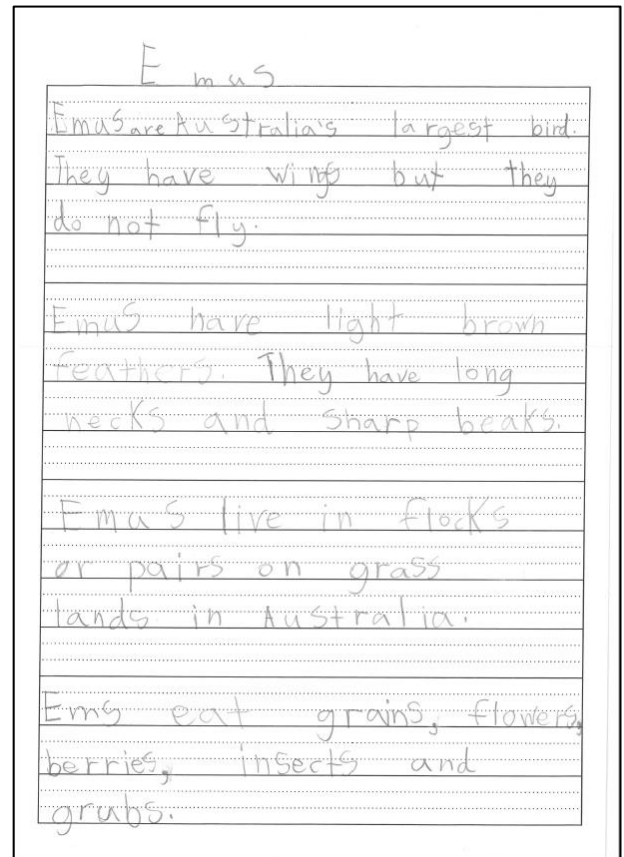 Emus
Emus are Australia's largest bird.
They have wings but they
do not fly.
Emus have light brown
feathers. They have long
necks and sharp beaks.
Emus live in flocks
or pairs on grass
lands in Australia.
Ems eat grains, flowers,
berries, insects and
grubs.